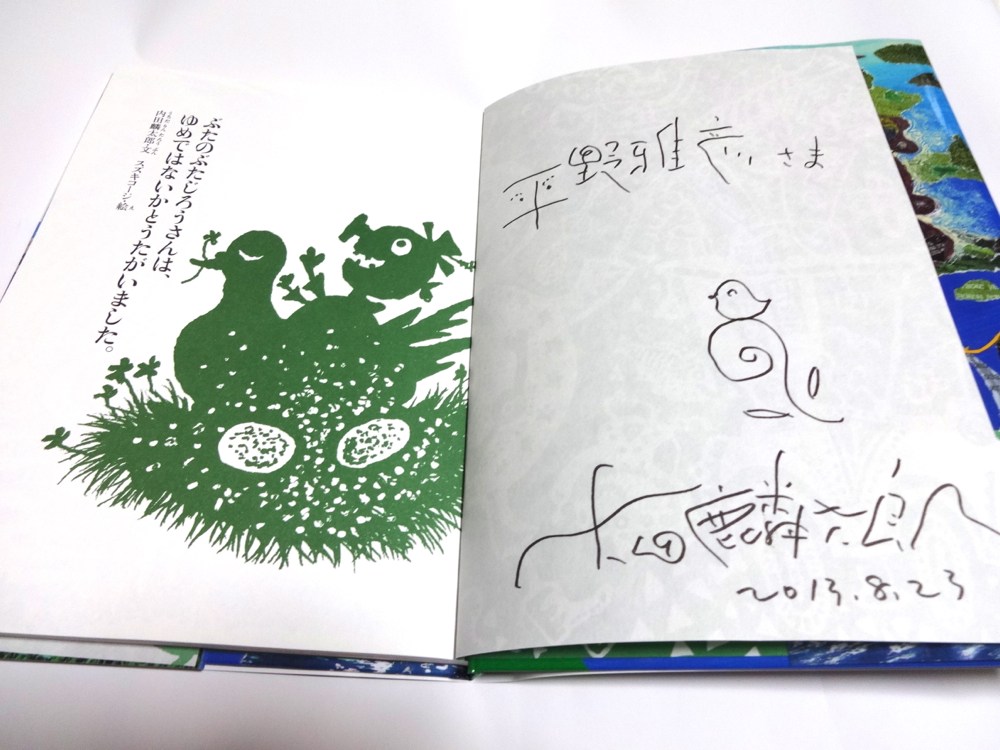 ぶたのぶたじろうさんは、
ゆめではないかとうたがいました。
内田麟太郎 文　スズキコージ 絵
平野雅彦さま
内田麟太郎
2013.8.23